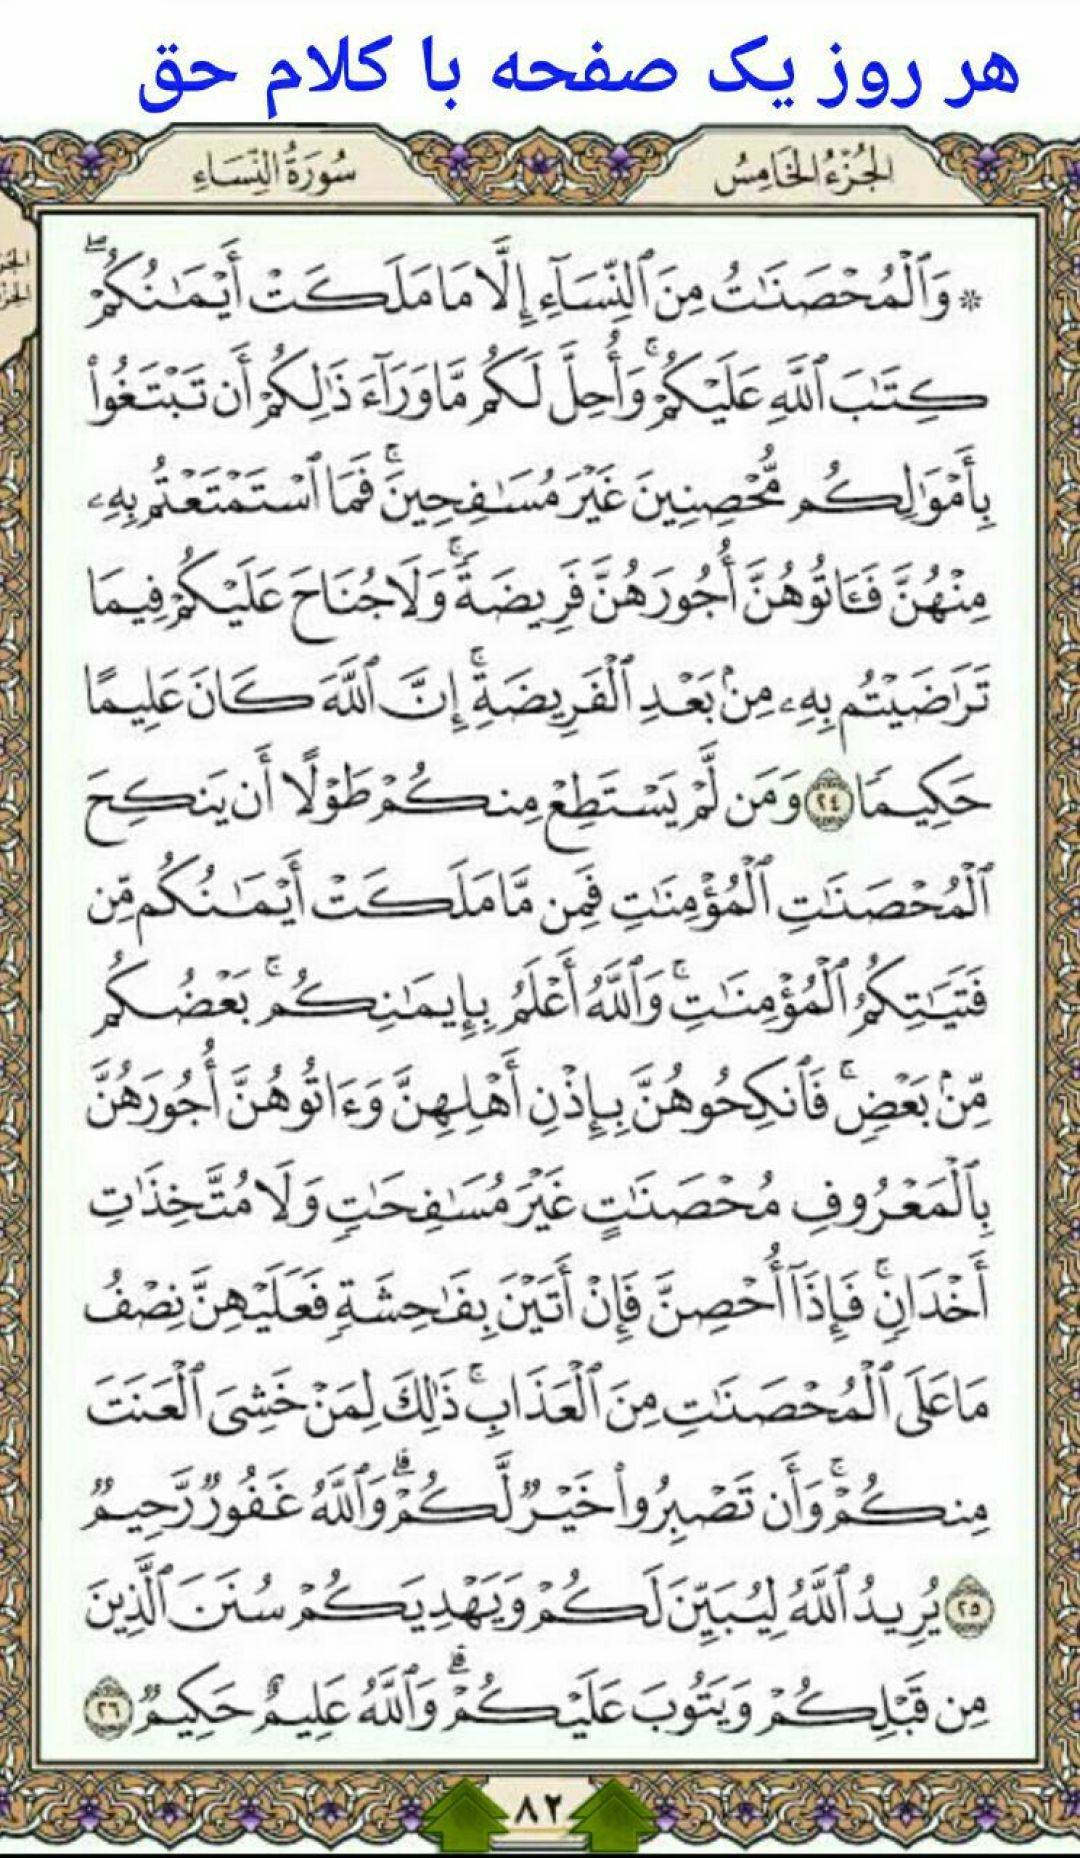 هر روز یک صفحه با کلام حق
الجُزْءُ الخَامِسُ
سُورَةُ النِّسَاءِ
۞ وَٱلْمُحْصَنَـٰتُ مِنَ ٱلنِّسَآءِ إِلَّا مَا مَلَكَتْ أَيْمَـٰنُكُمْ ۖ
كِتَـٰبَ ٱللَّهِ عَلَيْكُمْ ۚ وَأُحِلَّ لَكُم مَّا وَرَآءَ ذَٰلِكُمْ أَن تَبْتَغُوا۟
بِأَمْوَٰلِكُم مُّحْصِنِينَ غَيْرَ مُسَـٰفِحِينَ ۚ فَمَا ٱسْتَمْتَعْتُم بِهِۦ
مِنْهُنَّ فَـَٔاتُوهُنَّ أُجُورَهُنَّ فَرِيضَةً ۚ وَلَا جُنَاحَ عَلَيْكُمْ فِيمَا
تَرَٰضَيْتُم بِهِۦ مِنۢ بَعْدِ ٱلْفَرِيضَةِ ۚ إِنَّ ٱللَّهَ كَانَ عَلِيمًا
حَكِيمًا ٢٤ وَمَن لَّمْ يَسْتَطِعْ مِنكُمْ طَوْلًا أَن يَنكِحَ
ٱلْمُحْصَنَـٰتِ ٱلْمُؤْمِنَـٰتِ فَمِن مَّا مَلَكَتْ أَيْمَـٰنُكُم مِّن
فَتَيَـٰتِكُمُ ٱلْمُؤْمِنَـٰتِ ۚ وَٱللَّهُ أَعْلَمُ بِإِيمَـٰنِكُم ۚ بَعْضُكُم
مِّنۢ بَعْضٍ ۚ فَٱنكِحُوهُنَّ بِإِذْنِ أَهْلِهِنَّ وَءَاتُوهُنَّ أُجُورَهُنَّ
بِٱلْمَعْرُوفِ مُحْصَنَـٰتٍ غَيْرَ مُسَـٰفِحَـٰتٍ وَلَا مُتَّخِذَٰتِ
أَخْدَانٍ ۚ فَإِذَآ أُحْصِنَّ فَإِنْ أَتَيْنَ بِفَـٰحِشَةٍ فَعَلَيْهِنَّ نِصْفُ
مَا عَلَى ٱلْمُحْصَنَـٰتِ مِنَ ٱلْعَذَابِ ۚ ذَٰلِكَ لِمَنْ خَشِىَ ٱلْعَنَتَ
مِنكُمْ ۚ وَأَن تَصْبِرُوا۟ خَيْرٌ لَّكُمْ ۗ وَٱللَّهُ غَفُورٌ رَّحِيمٌ
٢٥ يُرِيدُ ٱللَّهُ لِيُبَيِّنَ لَكُمْ وَيَهْدِيَكُمْ سُنَنَ ٱلَّذِينَ
مِن قَبْلِكُمْ وَيَتُوبَ عَلَيْكُمْ ۗ وَٱللَّهُ عَلِيمٌ حَكِيمٌ ٢٦
٨٢